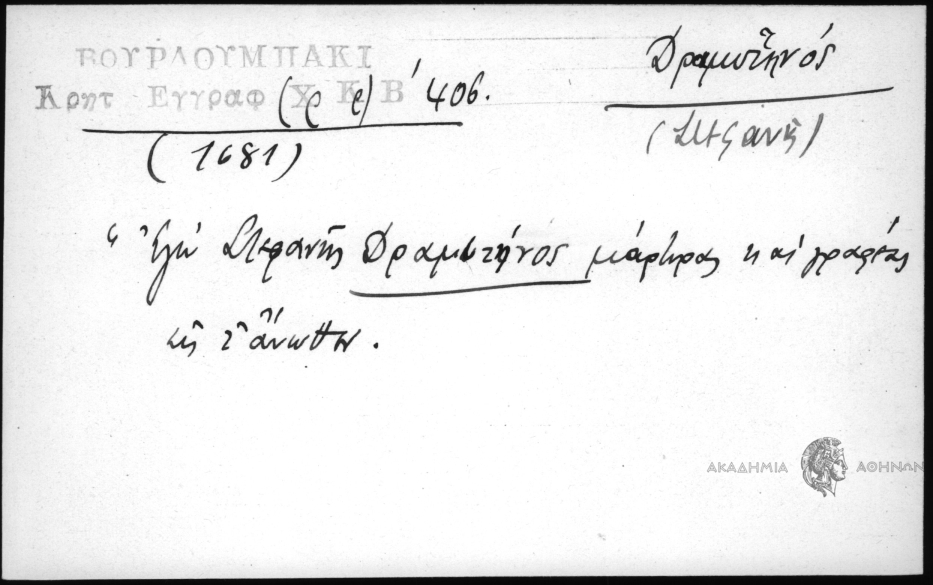 ΒΟΥΡΔΟΥΜΠΑΚΙ
Κρητ Εγγραφ (ρε) ΧΚΒ' 406.
(1681)
Δραμυτηνός
(Στεφανής)
"Ἐγὼ Στεφανῆς Δραμυτήνος μάρτηρας καὶ γραφέας
εἰς τ' ἄνωθεν.
ΑΚΑΔΗΜΙΑ ΑΘΗΝΩΝ